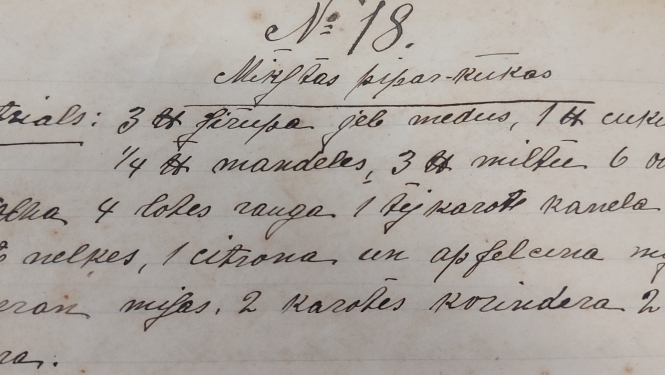 № 18.
Mīkstās pipar-kūkas
rials: 3 ℔ sīrupa jeb medus, 1 ℔ cuku
1/4 ℔ mandeles, 3 ℔ miltu 6 o
4 lotes rauga 1 tējkarote kanela
nelkes, 1 citrona un apfelcina
mijas. 2 karotes korindera 2
ra.